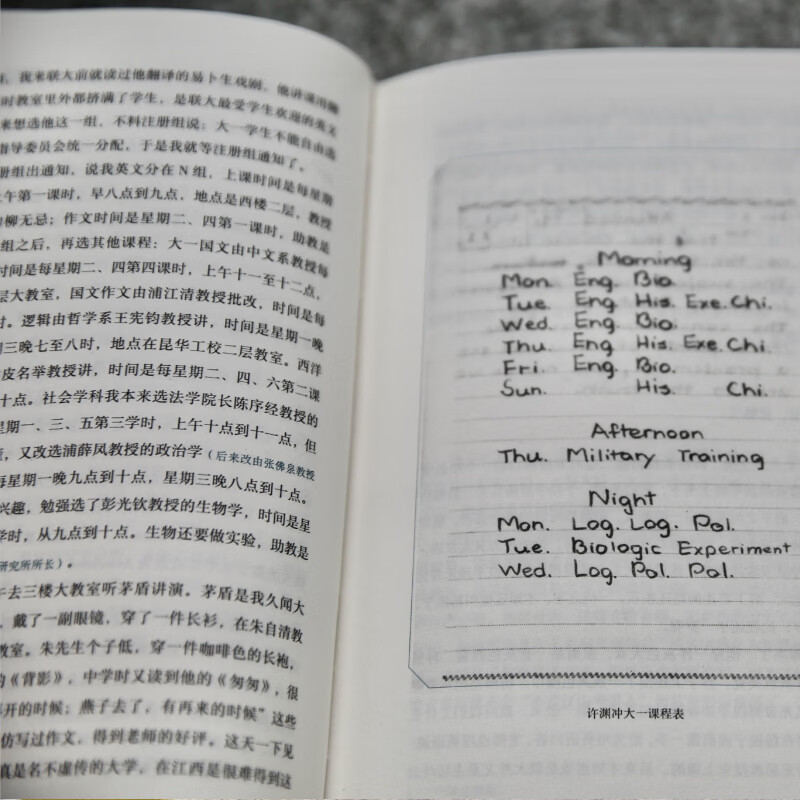 我来联大前就读过他翻译的易卜生戏剧，他讲课用
时教室里外都挤满了学生，是联大最受学生欢迎的英文
来想选他这一组，不料注册组说：大一学生不能自由选
指导委员会统一分配，于是我就等注册组通知了。
册组出通知，说我英文分在 N 组，上课时间是每星期
上午第一课时，早八点到九点，地点是西楼二层，教授
柳无忌；作文时间是星期二、四第一课时，助教是
组之后，再选其他课程：大一国文由中文系教授每
时间是每星期二、四第四课时，上午十一至十二点，
层大教室，国文作文由浦江清教授批改，时间是每
时。逻辑由哲学系王宪钧教授讲，时间是星期一晚
期三晚七至八时，地点在昆华工校二层教室。西洋
皮名举教授讲，时间是每星期二、四、六第二课
十点。社会学科我本来选法学院长陈序经教授的
星期一、三、五第三学时，上午十点到十一点，但
，又改选浦薛凤教授的政治学（后来改由张佛泉教授
每星期一晚九点到十点，星期三晚八点到十点。
兴趣，勉强选了彭光钦教授的生物学，时间是星
学时，从九点到十点。生物还要做实验，助教是
研究所所长）。
午去三楼大教室听茅盾讲演。茅盾是我久闻大
，戴了一副眼镜，穿了一件长衫，在朱自清教
教室。朱先生个子低，穿一件咖啡色的长袍，
的《背影》，中学时又读到他的《匆匆》，很
再开的时候；燕子去了，有再来的时候”这些
仿写过作文，得到老师的好评。这天一下见
真是名不虚传的大学，在江西是很难得到这
Morning
Mon. Eng. Bio.
Tue. Eng. His. Exe. Chi.
Wed. Eng. Bio.
Thu. Eng. His. Exe. Chi.
Fri. Eng. Bio.
Sun. His. Chi.
Afternoon
Thu. Military Training
Night
Mon. Log. Log. Pol.
Tue. Biologic Experiment
Wed. Log. Pol. Pol.
许渊冲大一课程表